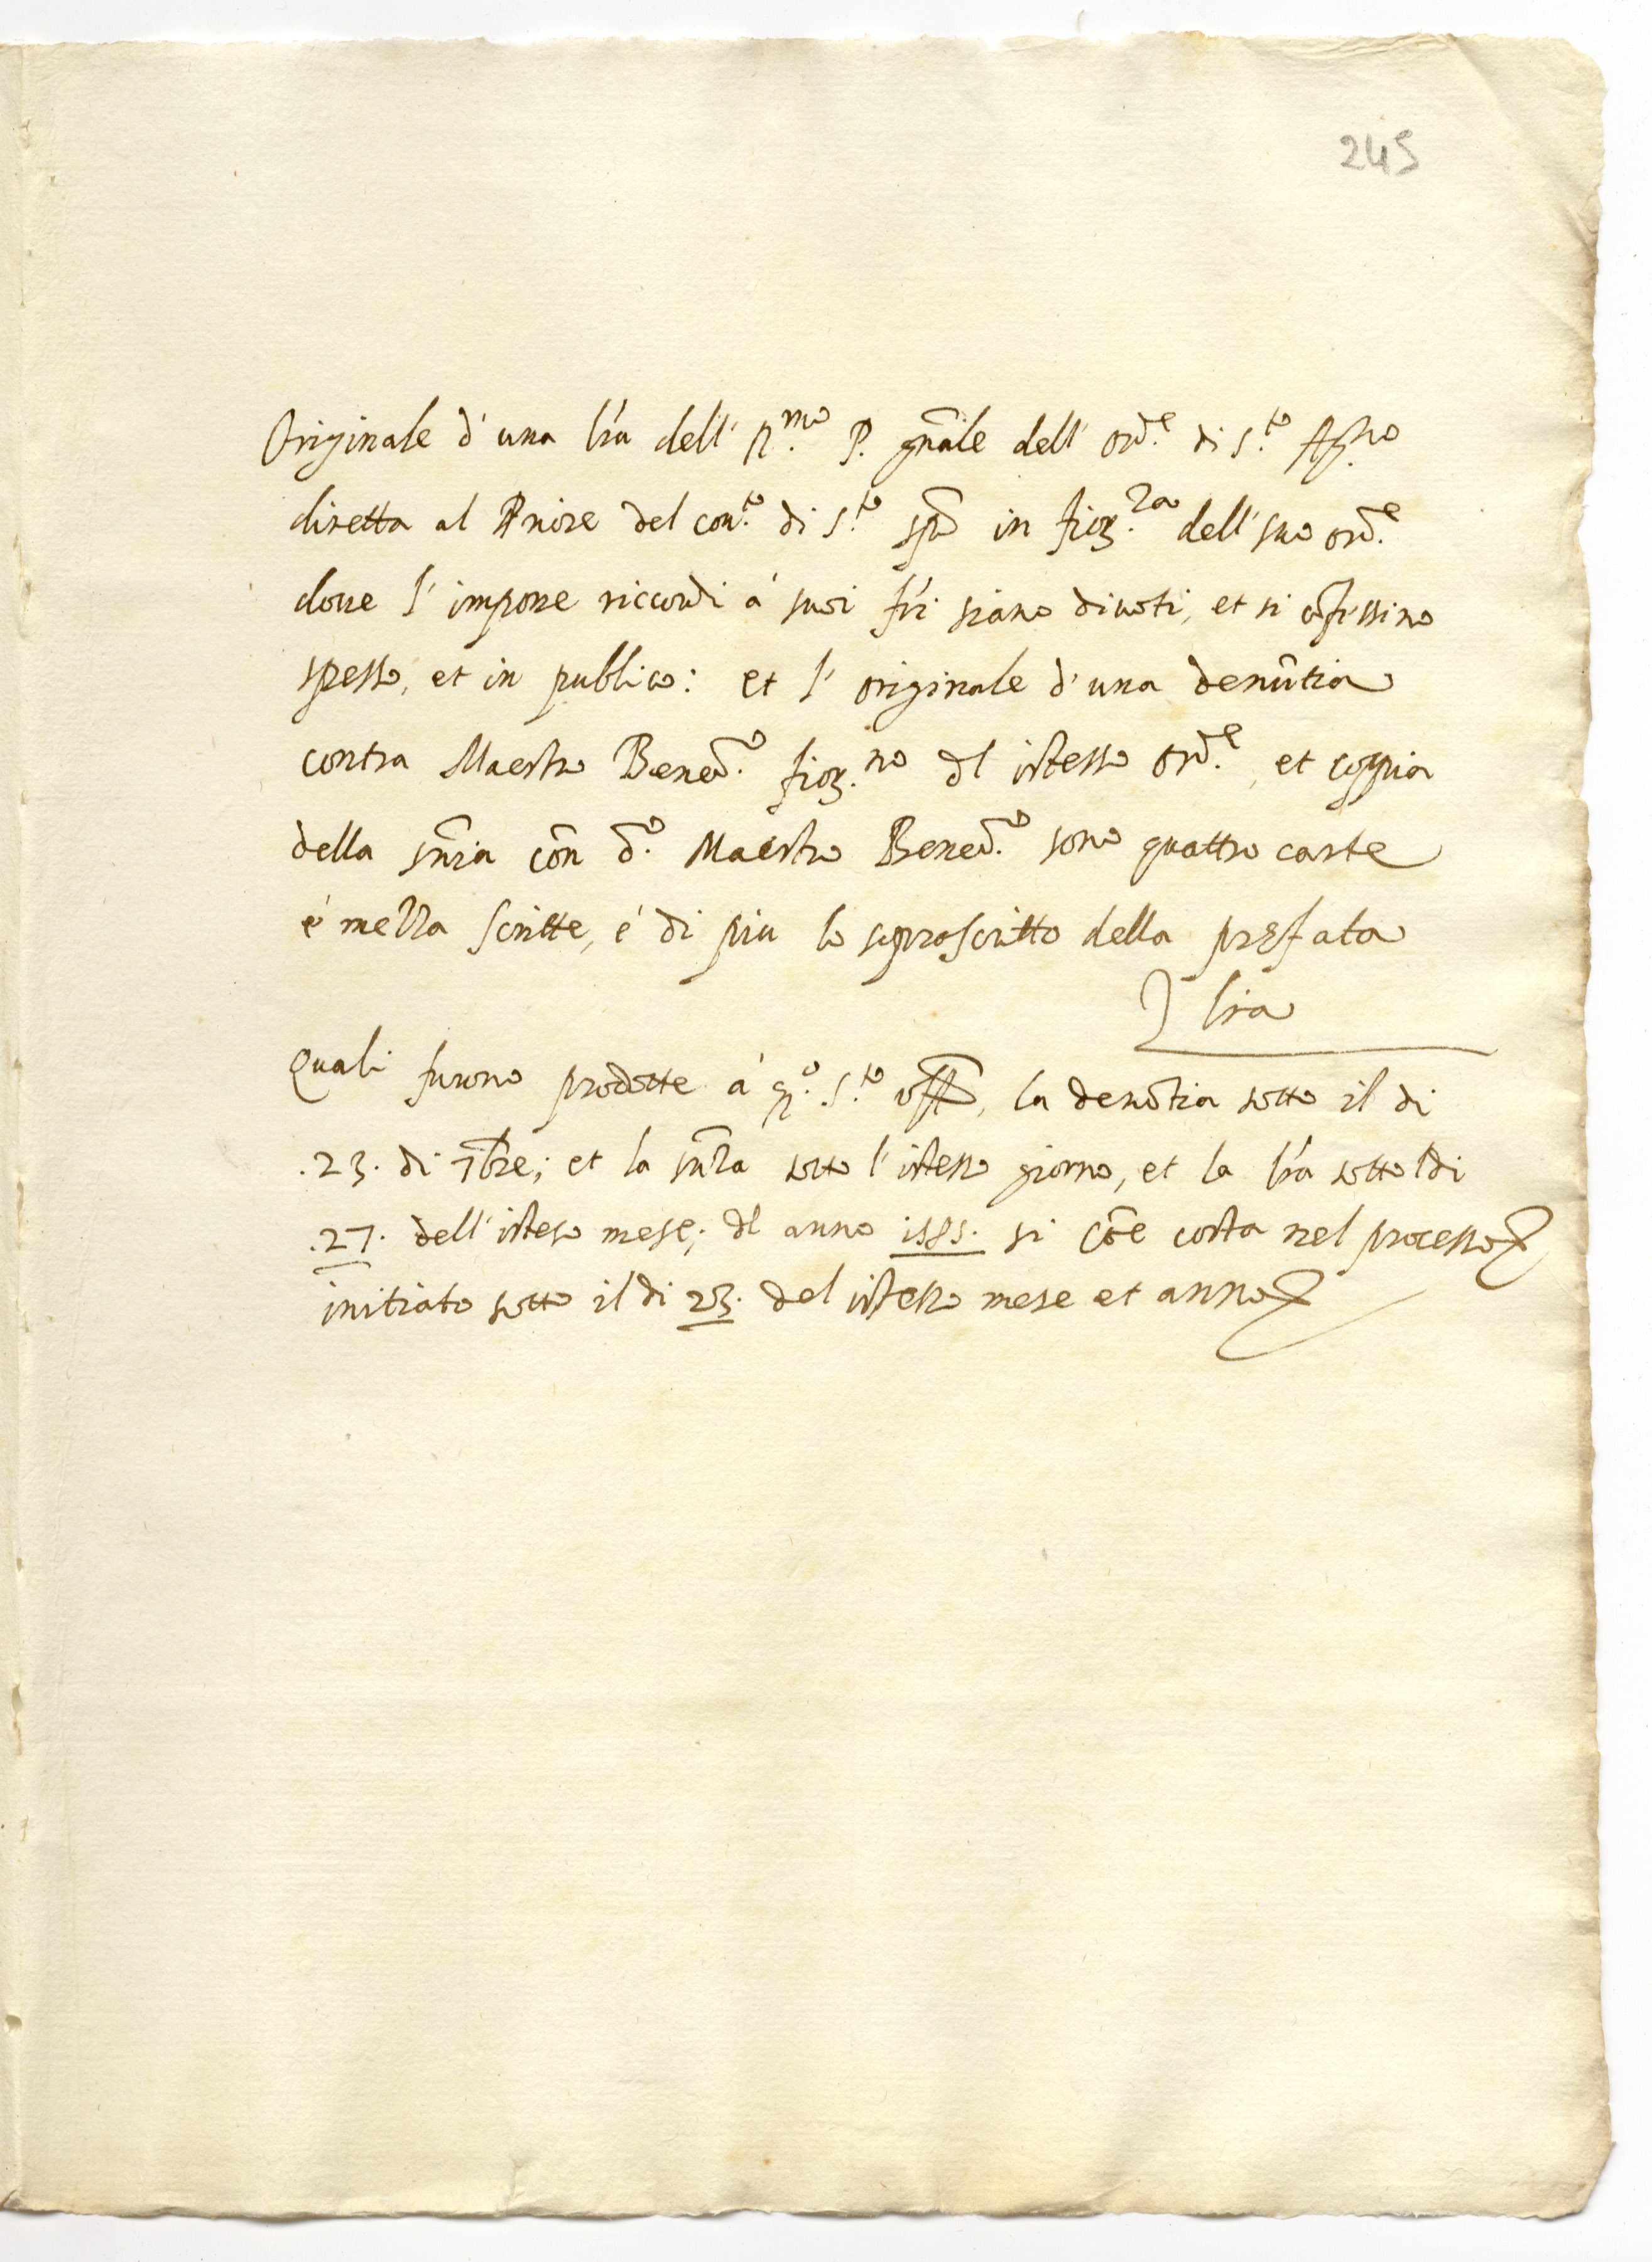 245
Originale d'una lr̃a dell' R.mo P. gn̄ale dell' ord.e di s.to Ag.no
diretta al Priore del con.to di s.to sp̄o in fior.za dell' suo ord.e
doue l' impone riccordi á suoi fr̃i siano diuoti, et si cōfessino
spesso, et in publico: et l' originale d'una denūtia
contra Maestro Bened.o fior.no dl istesso ord.e, et coppia
della sn̄ia con d.o Maestro Bened.o sono quattro carte
é mezza scritte, é di piu lo soprascritto della prefata
lr̃a
Quali furono prodotte á q.o s.to off.o, la denōtia sotto il di
.23. di 7bre; et la sn̄ia sotto l'istesso giorno, et la lr̃a sotto ldi
.27. dell'isteso mese; dl anno 1585. si cōe costa nel processo
initiato sotto il di 23. del istesso mese et anno